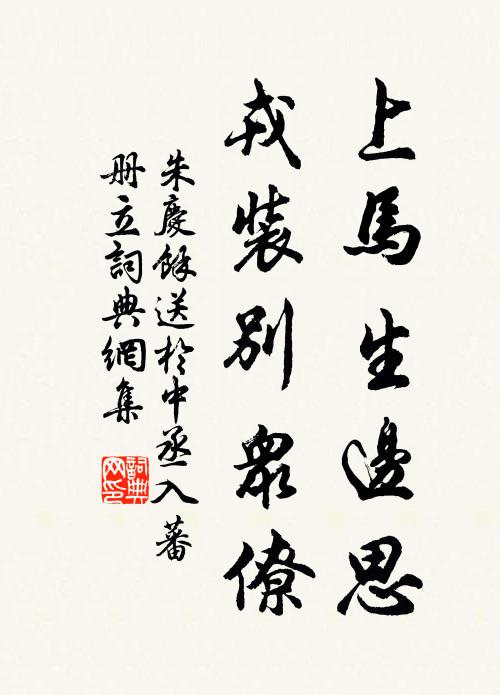 上馬生邊思
戎裝別眾僚
朱慶餘送於中丞入蕃
册立詞典網集
詞典网印